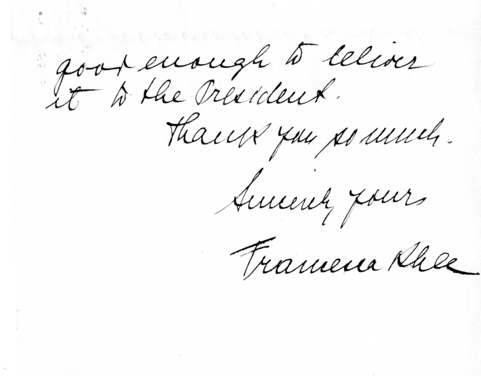 good enough to deliver
it to the President.
Thank you so much.
Sincerely yours
Francesca Rhee